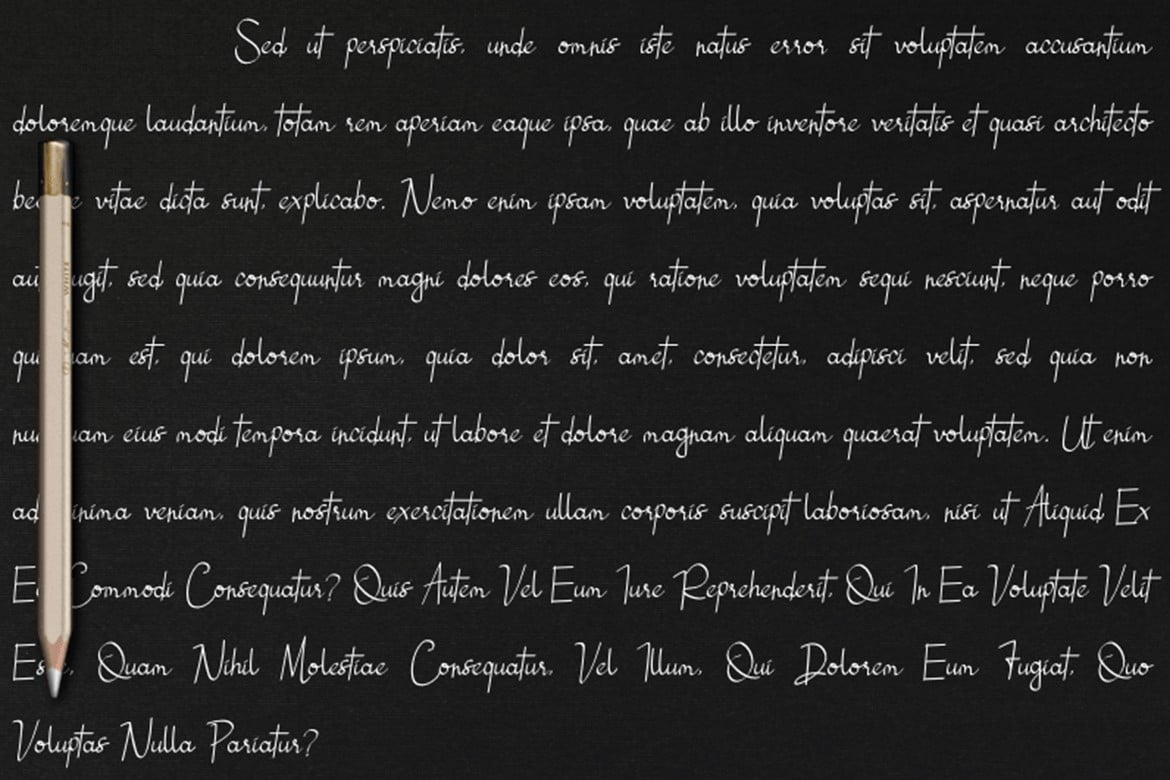 Sed ut perspiciatis, unde omnis iste natus error sit voluptatem accusantium
doloremque laudantium, totam rem aperiam eaque ipsa, quae ab illo inventore veritatis et quasi architecto
vitae dicta sunt, explicabo. Nemo enim ipsam voluptatem, quia voluptas sit, aspernatur aut odit
sed quia consequuntur magni dolores eos, qui ratione voluptatem sequi nesciunt, neque porro
est, qui dolorem ipsum, quia dolor sit, amet, consectetur, adipisci velit, sed quia non
eius modi tempora incidunt, ut labore et dolore magnam aliquam quaerat voluptatem. Ut enim
ad veniam, quis nostrum exercitationem ullam corporis suscipit laboriosam, nisi ut Aliquid Ex
Commodi Consequatur? Quis Autem Vel Eum Iure Reprehenderit, Qui In Ea Voluptate Velit
Quam Nihil Molestiae Consequatur, Vel Illum, Qui Dolorem Eum Fugiat, Quo
Voluptas Nulla Pariatur?